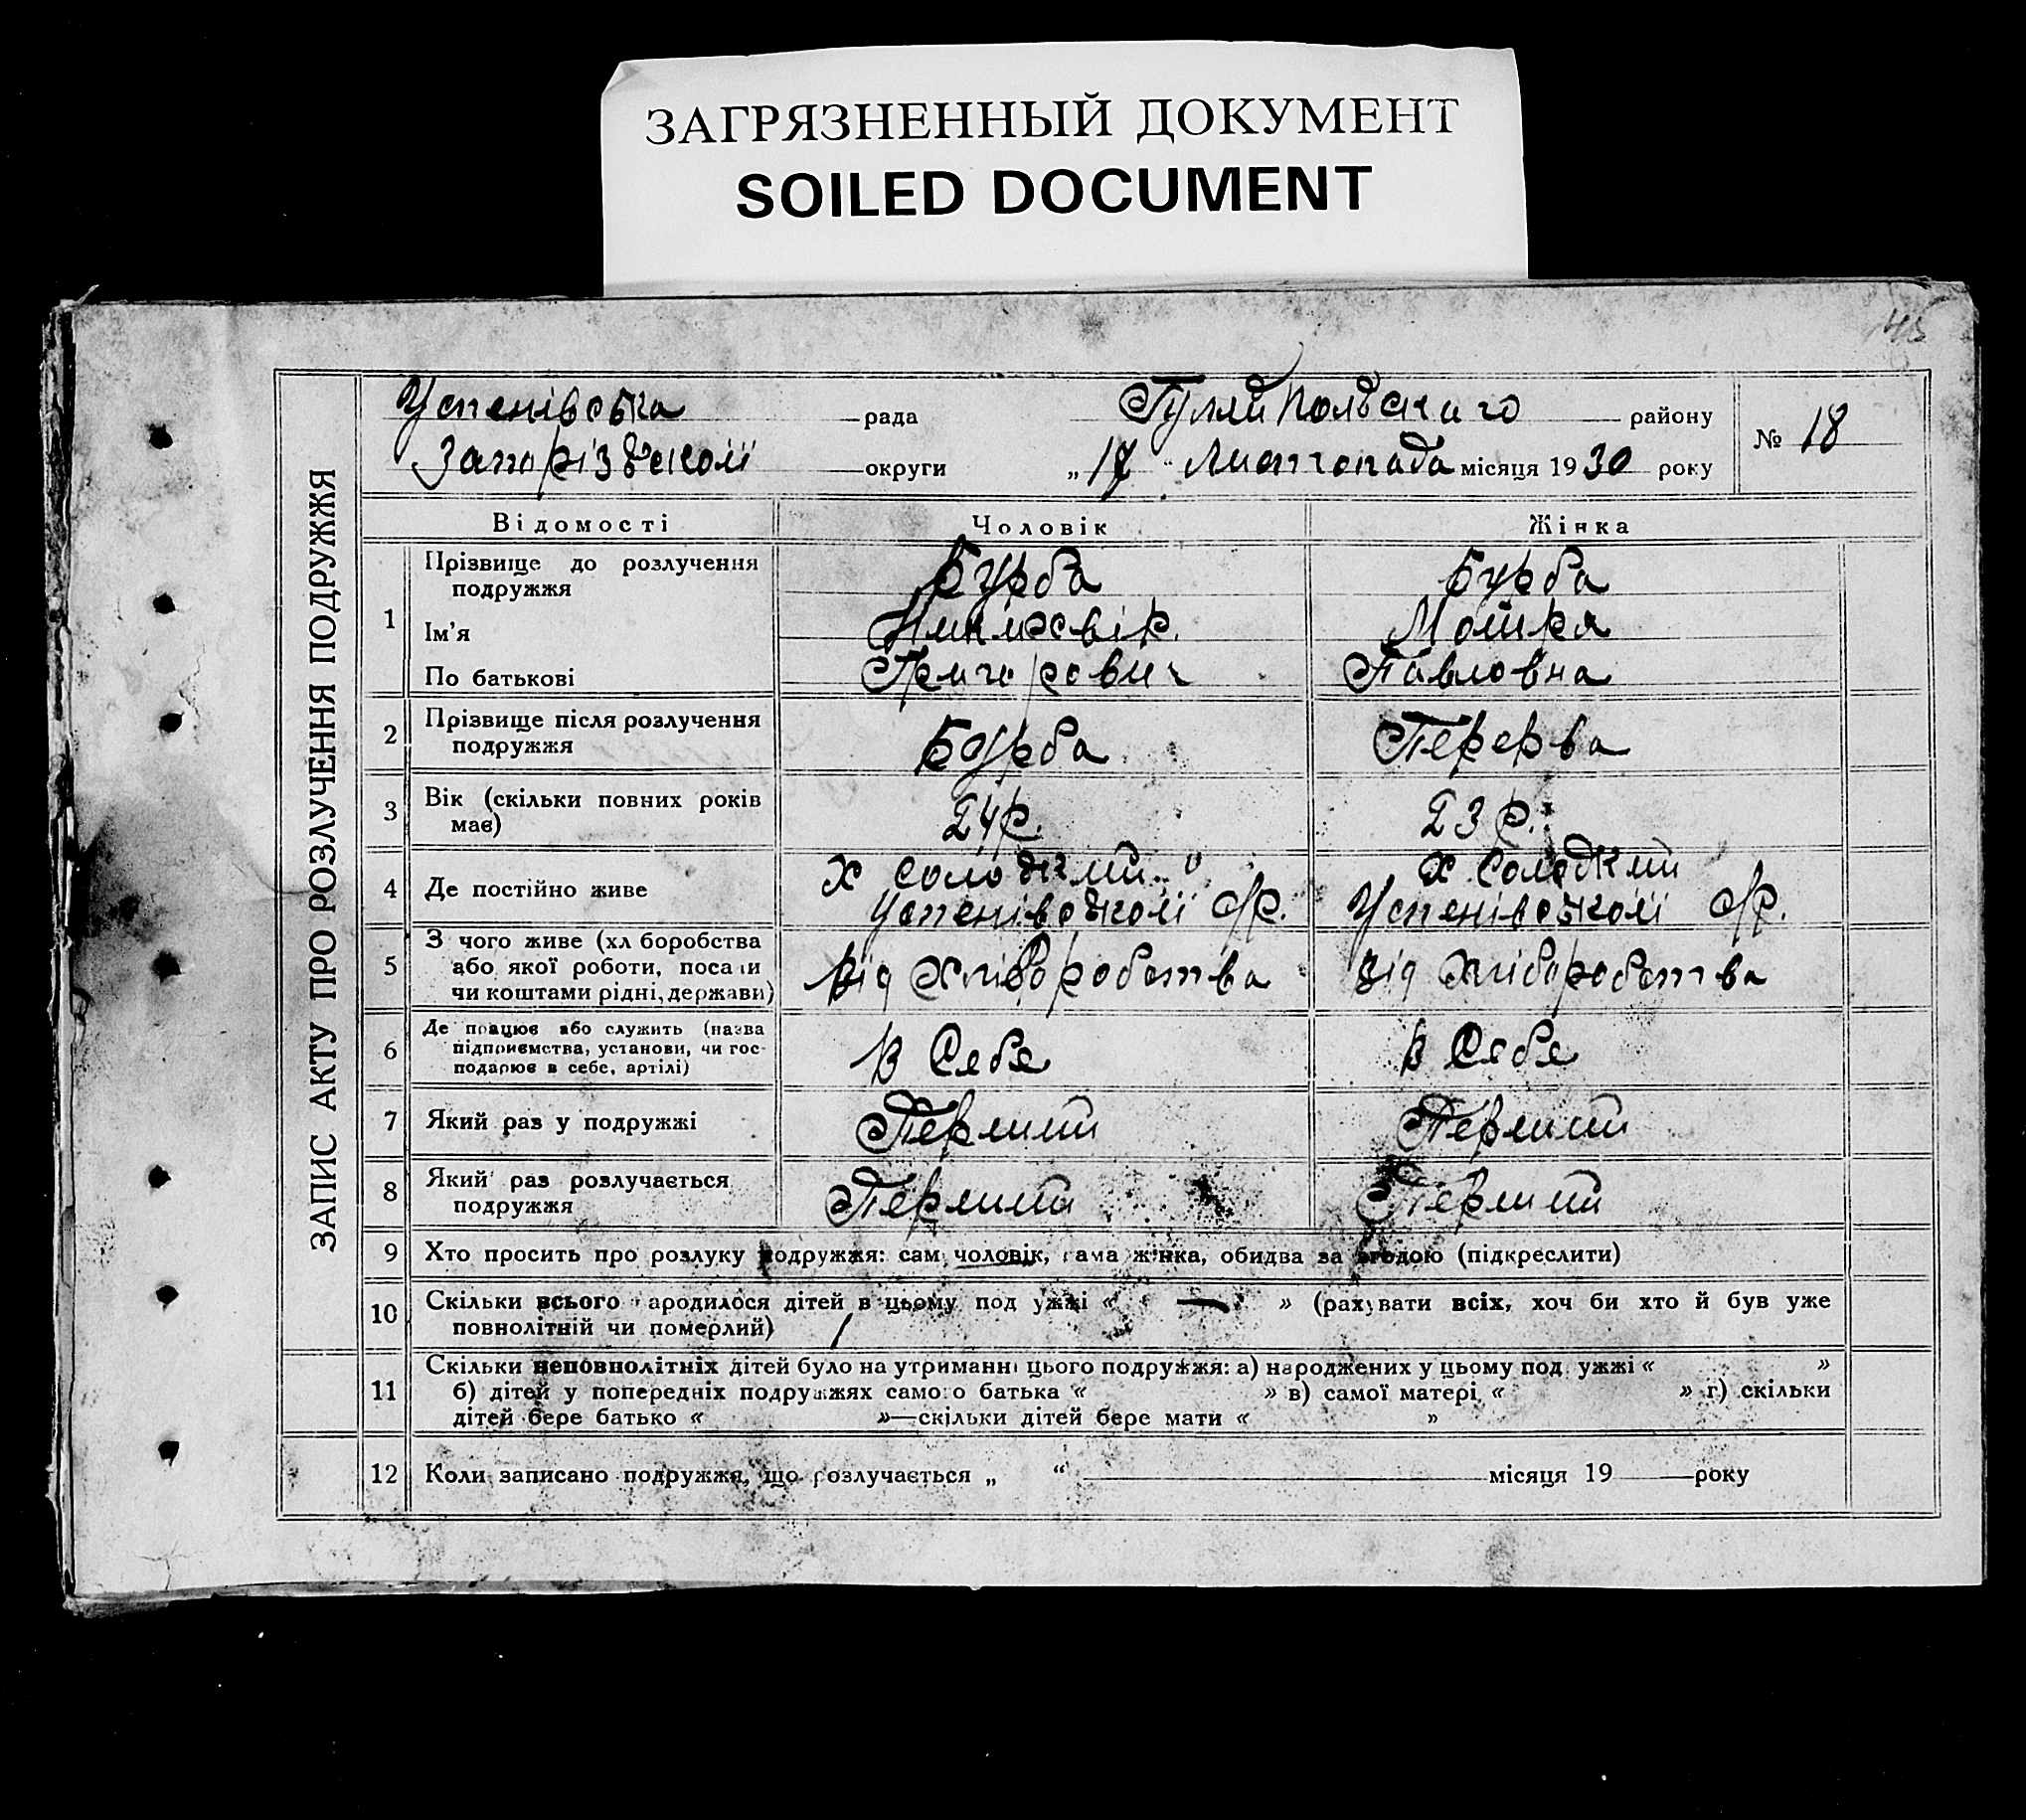 ЗАГРЯЗНЕННЫЙ ДОКУМЕНТ
SOILED DOCUMENT
45
ЗАПИС АКТУ ПРО РОЗЛУЧЕННЯ ПОДРУЖЖЯ
Успенівська рада Гуляйпольського району № 18
Запорізської округи „17“ Листопада місяця 1930 року
Відомості Чоловік Жінка
1 Прізвище до розлучення подружжя Бурба Бурба
Ім'я Мотря
По батькові Григорович Павловна
2 Прізвище після розлучення подружжя Бурба Перерва
3 Вік (скільки повних років має) 24 р. 23 р.
4 Де постійно живе х Солодкий Успенівської с/р. х. Солодкий Успенівської с/р.
5 З чого живе (хл боробства або якої роботи, посади чи коштами рідні, держави) Від Хліборобства Від Хліборобства
6 Де працює або служить (назва підприємства, установи, чи господарює в себе, артілі) В Себе В Себе
7 Який раз у подружжі Перший Перший
8 Який раз розлучається подружжя Перший Перший
9 Хто просить про розлуку подружжя: сам чоловік, сама жінка, обидва за згодою (підкреслити)
10 Скільки всього народилося дітей в цьому подружжі « — » (рахувати всіх, хоч би хто й був уже
повнолітній чи померлий)
11 Скільки неповнолітніх дітей було на утриманні цього подружжя: а) народжених у цьому подружжі « »
б) дітей у попередніх подружжях самого батька « » в) самої матері « » г) скільки
дітей бере батько « »—скільки дітей бере мати « »
12 Коли записано подружжя, що розлучається „ “ місяця 19 року